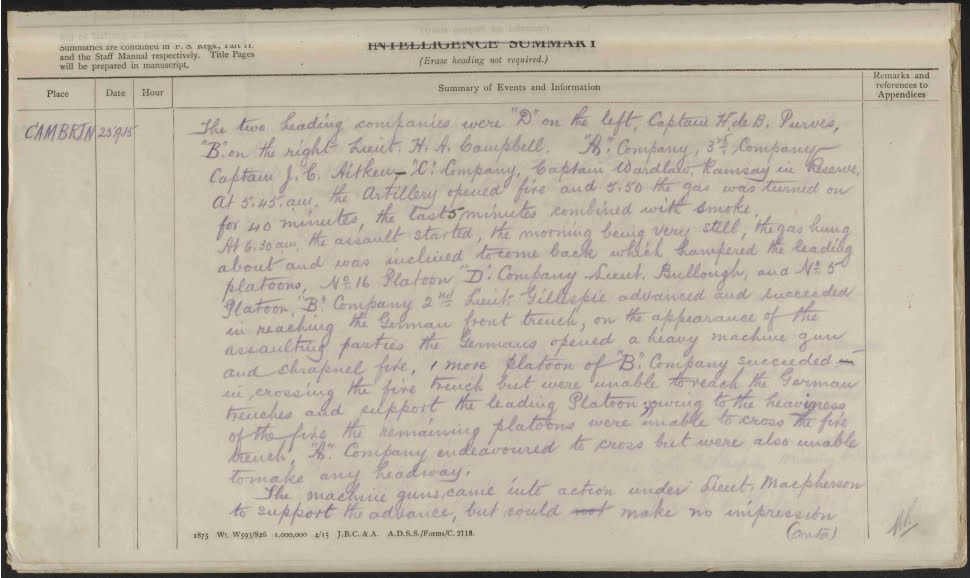 Summaries are contained in F. S. Regs., Part II.
and the Staff Manual respectively. Title Pages
will be prepared in manuscript.
INTELLIGENCE SUMMARY
(Erase heading not required.)
Place
Date
Hour
Summary of Events and Information
Remarks and
references to
Appendices
CAMBRIN 25.9.15
The two leading companies were "D" on the left, Captain H. de B. Purves,
"B". on the right Lieut. H. A. Campbell. "A". Company, 3rd Company
Captain J. C. Aitken - "C". Company, Captain Wardlaw. Ramsay in Reserve.
At 5.45. am. the Artillery opened fire and 5.50 the gas was turned on
for 40 minutes, the last 5 minutes combined with smoke.
At 6.30 am the assault started, the morning being very still, the gas hung
about and was inclined to come back which hampered the leading
platoons, No. 16 Platoon "D". Company Lieut. Bullough, and No. 5
Platoon, "B". Company 2nd Lieut. Gillespie advanced and succeeded
in reaching the German front trench, on the appearance of the
assaulting parties the Germans opened a heavy machine gun
and shrapnel fire, 1 more platoon of "B". Company succeeded
in crossing the fire trench but were unable to reach the German
trenches and support the leading Platoon; owing to the heaviness
of the fire the remaining platoons were unable to cross the fire
trench, "A". Company endeavoured to cross but were also unable
to make any headway.
The machine guns, came into action under Lieut. Macpherson
to support the advance, but could not make no impression
(contd)
1875 Wt. W593/826 1,000,000 4/15 J.B.C. & A. A.D.S.S./Forms/C. 2118.